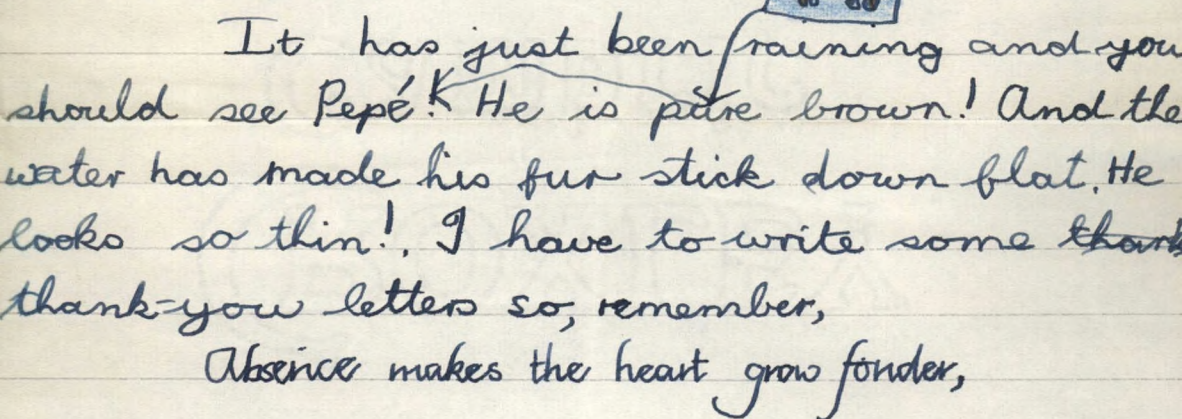 It has just been raining and you
should see Pepé! He is pure brown! And the
water has made his fur stick down flat. He
looks so thin! I have to write some thank
thank-you letters so, remember,
Absence makes the heart grow fonder,